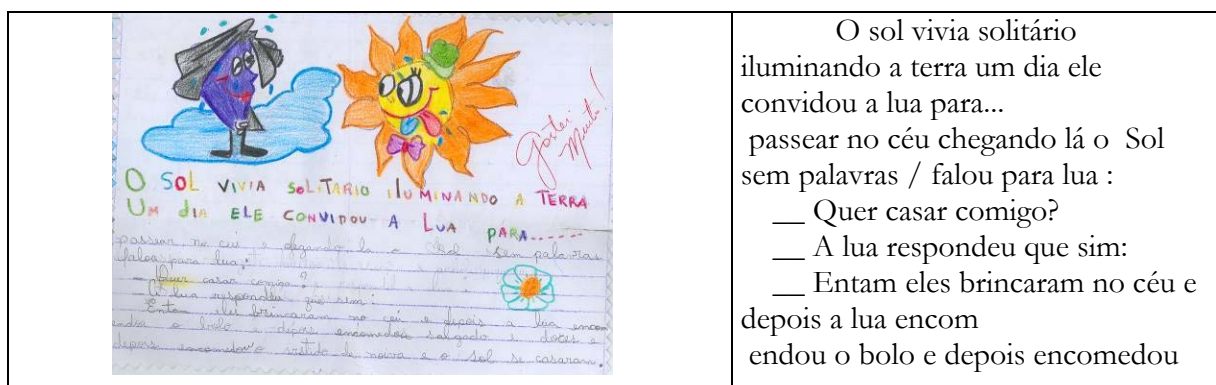 Gostei
Muito!
O SOL VIVIA SOLITARIO ILUMINANDO A TERRA
UM DIA ELE CONVIDOU A LUA PARA......
passear no ceu e chegando la o Sol sem palavras
falou para lua:
— Quer casar comigo?
— A lua respondeu que sim:
— Entam eles brincaram no ceu e depois a lua encom
endou o bolo e depois encomedou salgado e doces e
depois encomedou o vistido de noiva e o sol se casaram.
O sol vivia solitário
iluminando a terra um dia ele
convidou a lua para...
passear no céu chegando lá o Sol
sem palavras / falou para lua :
__ Quer casar comigo?
__ A lua respondeu que sim:
__ Entam eles brincaram no céu e
depois a lua encom
endou o bolo e depois encomedou